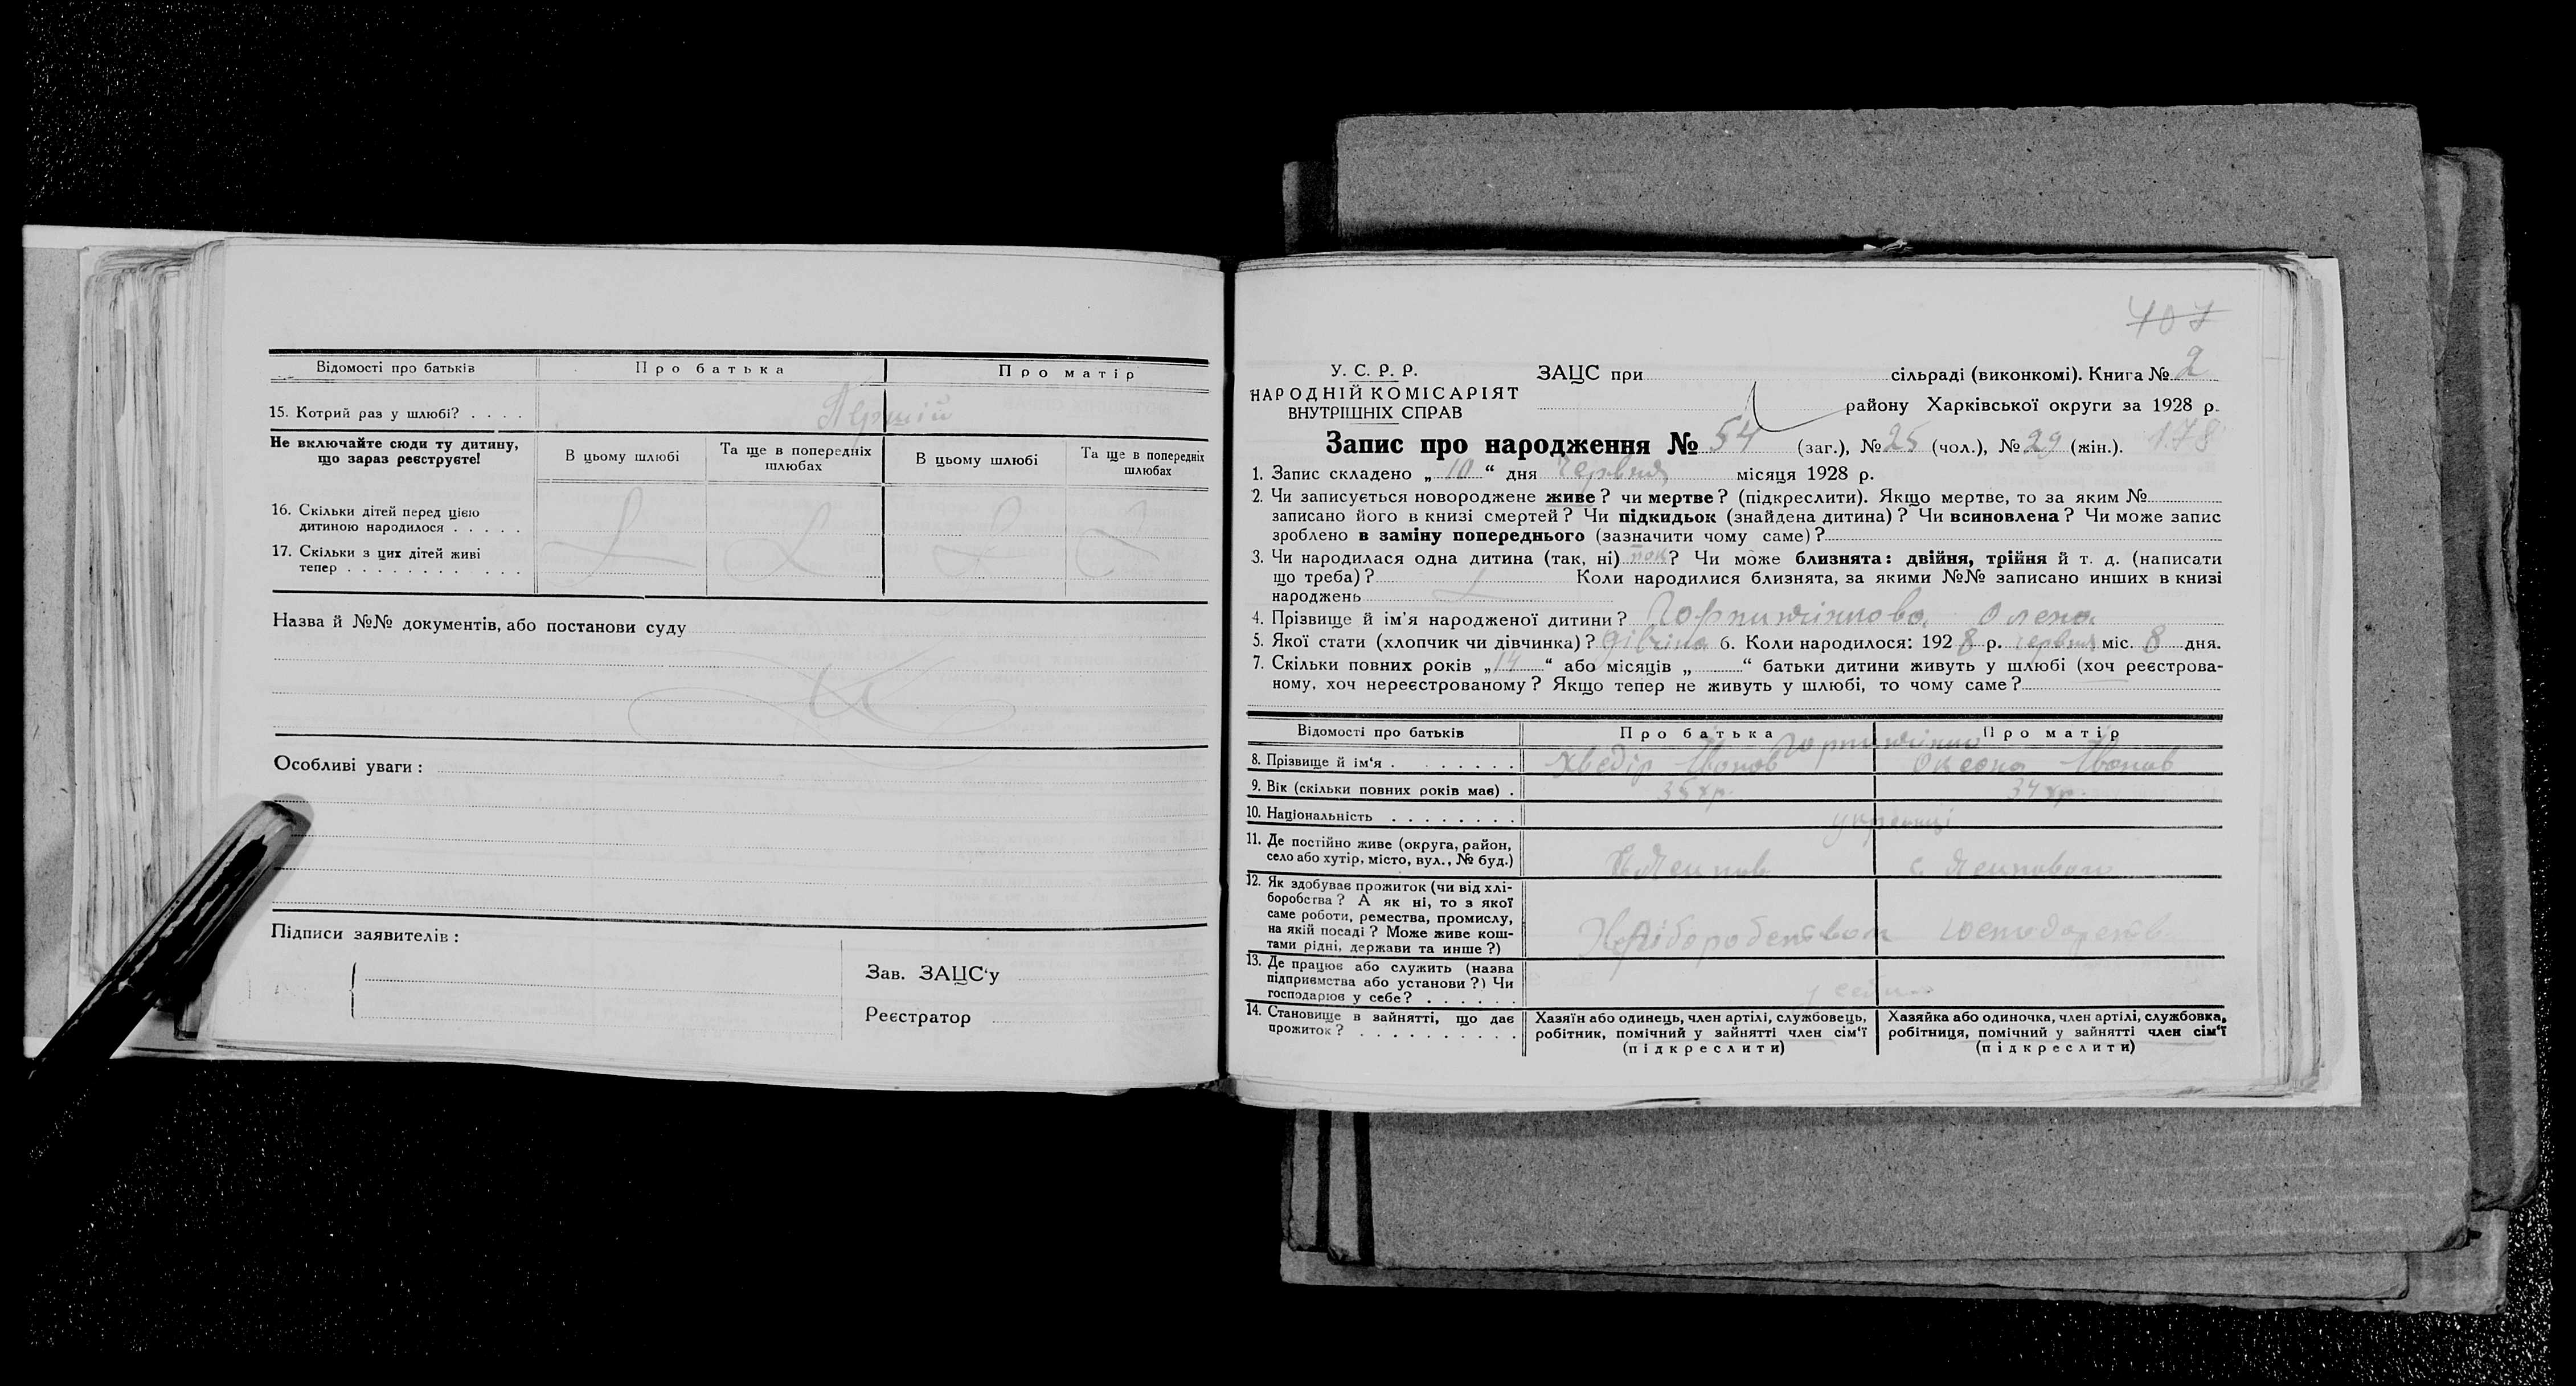 Відомості про батьків Про батька Про матір
15. Котрий раз у шлюбі? . . . . Перший
Не включайте сюди ту дитину, що зараз реєструєте!
В цьому шлюбі Та ще в попередніх шлюбах В цьому шлюбі Та ще в попередніх шлюбах
16. Скільки дітей перед цією
дитиною народилося . . . . .
17. Скільки з цих дітей живі
тепер . . . . . . . . . . .
Назва й №№ документів, або постанови суду
Особливі уваги :
Підписи заявителів :
Зав. ЗАЦС'у
Реєстратор
407
У. С. Р. Р.
НАРОДНІЙ КОМІСАРІЯТ
ВНУТРІШНІХ СПРАВ
ЗАЦС при сільраді (виконкомі). Книга № 2
району Харківської округи за 1928 р.
Запис про народження № 54 (заг.), № 25 (чол.), № 29 (жін.). 178
1. Запис складено „ 10 “ дня червня місяця 1928 р.
2. Чи записується новороджене живе? чи мертве? (підкреслити). Якщо мертве, то за яким №
записано його в книзі смертей? Чи підкидьок (знайдена дитина)? Чи всиновлена? Чи може запис
зроблено в заміну попереднього (зазначити чому саме)?
3. Чи народилася одна дитина (так, ні) ? Чи може близнята: двійня, трійня й т. д. (написати
що треба)? Коли народилися близнята, за якими №№ записано инших в книзі
народжень
4. Прізвище й ім'я народженої дитини? Олена
5. Якої стати (хлопчик чи дівчинка)? дівчина 6. Коли народилося: 1928 р. червня міс. 8 дня.
7. Скільки повних років „ 14 “ або місяців „ “ батьки дитини живуть у шлюбі (хоч реєстрова-
ному, хоч нереєстрованому? Якщо тепер не живуть у шлюбі, то чому саме?
Відомості про батьків Про батька Про матір
8. Прізвище й ім'я . . . . . . . Хведір Іванов Оксана Іванов
9. Вік (скільки повних років має) . 35 р. 34 р.
10. Національність . . . . . . . . українці
11. Де постійно живе (округа, район,
село або хутір, місто, вул., № буд.)
12. Як здобуває прожиток (чи від хлі-
боробства? А як ні, то з якої
саме роботи, ремества, промислу,
на якій посаді? Може живе кош-
тами рідні, держави та инше?)
Хліборобством
13. Де працює або служить (назва
підприємства або установи?) Чи
господарює у себе? . . . . . .
14. Становище в зайнятті, що дає
прожиток? . . . . . . . . . .
Хазяїн або одинець, член артілі, службовець,
робітник, помічний у зайнятті член сім'ї
(підкреслити)
Хазяйка або одиночка, член артілі, службовка,
робітниця, помічний у зайнятті член сім'ї
(підкреслити)